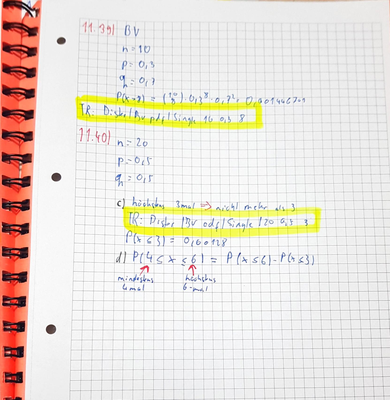 11.39) BV
n = 10
p = 0,3
q = 0,7
P(x=8) = (10 8) · 0,3⁸ · 0,7² = 0,001446701
TR: Distr / BV pdf / Single 10 0,3 8
11.40)
n = 20
p = 0,5
q = 0,5
c) höchstens 3mal => nicht mehr als 3
TR: Distr / BV cdf / Single / 20 0,5 3
P(x≤3) = 0,00128
d) P(4 ≤ x ≤ 6) = P(x≤6) - P(x≤3)
mindestens höchstens
4mal 6-mal